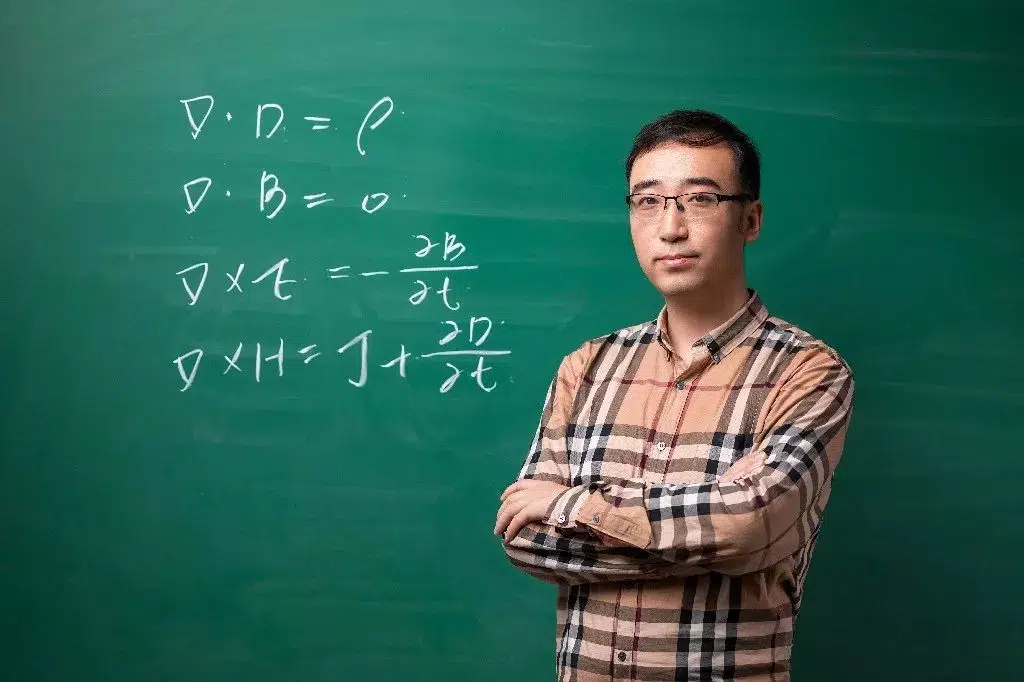 ∇ · D = ρ
∇ · B = 0
∇ × E = - ∂B/∂t
∇ × H = J + ∂D/∂t